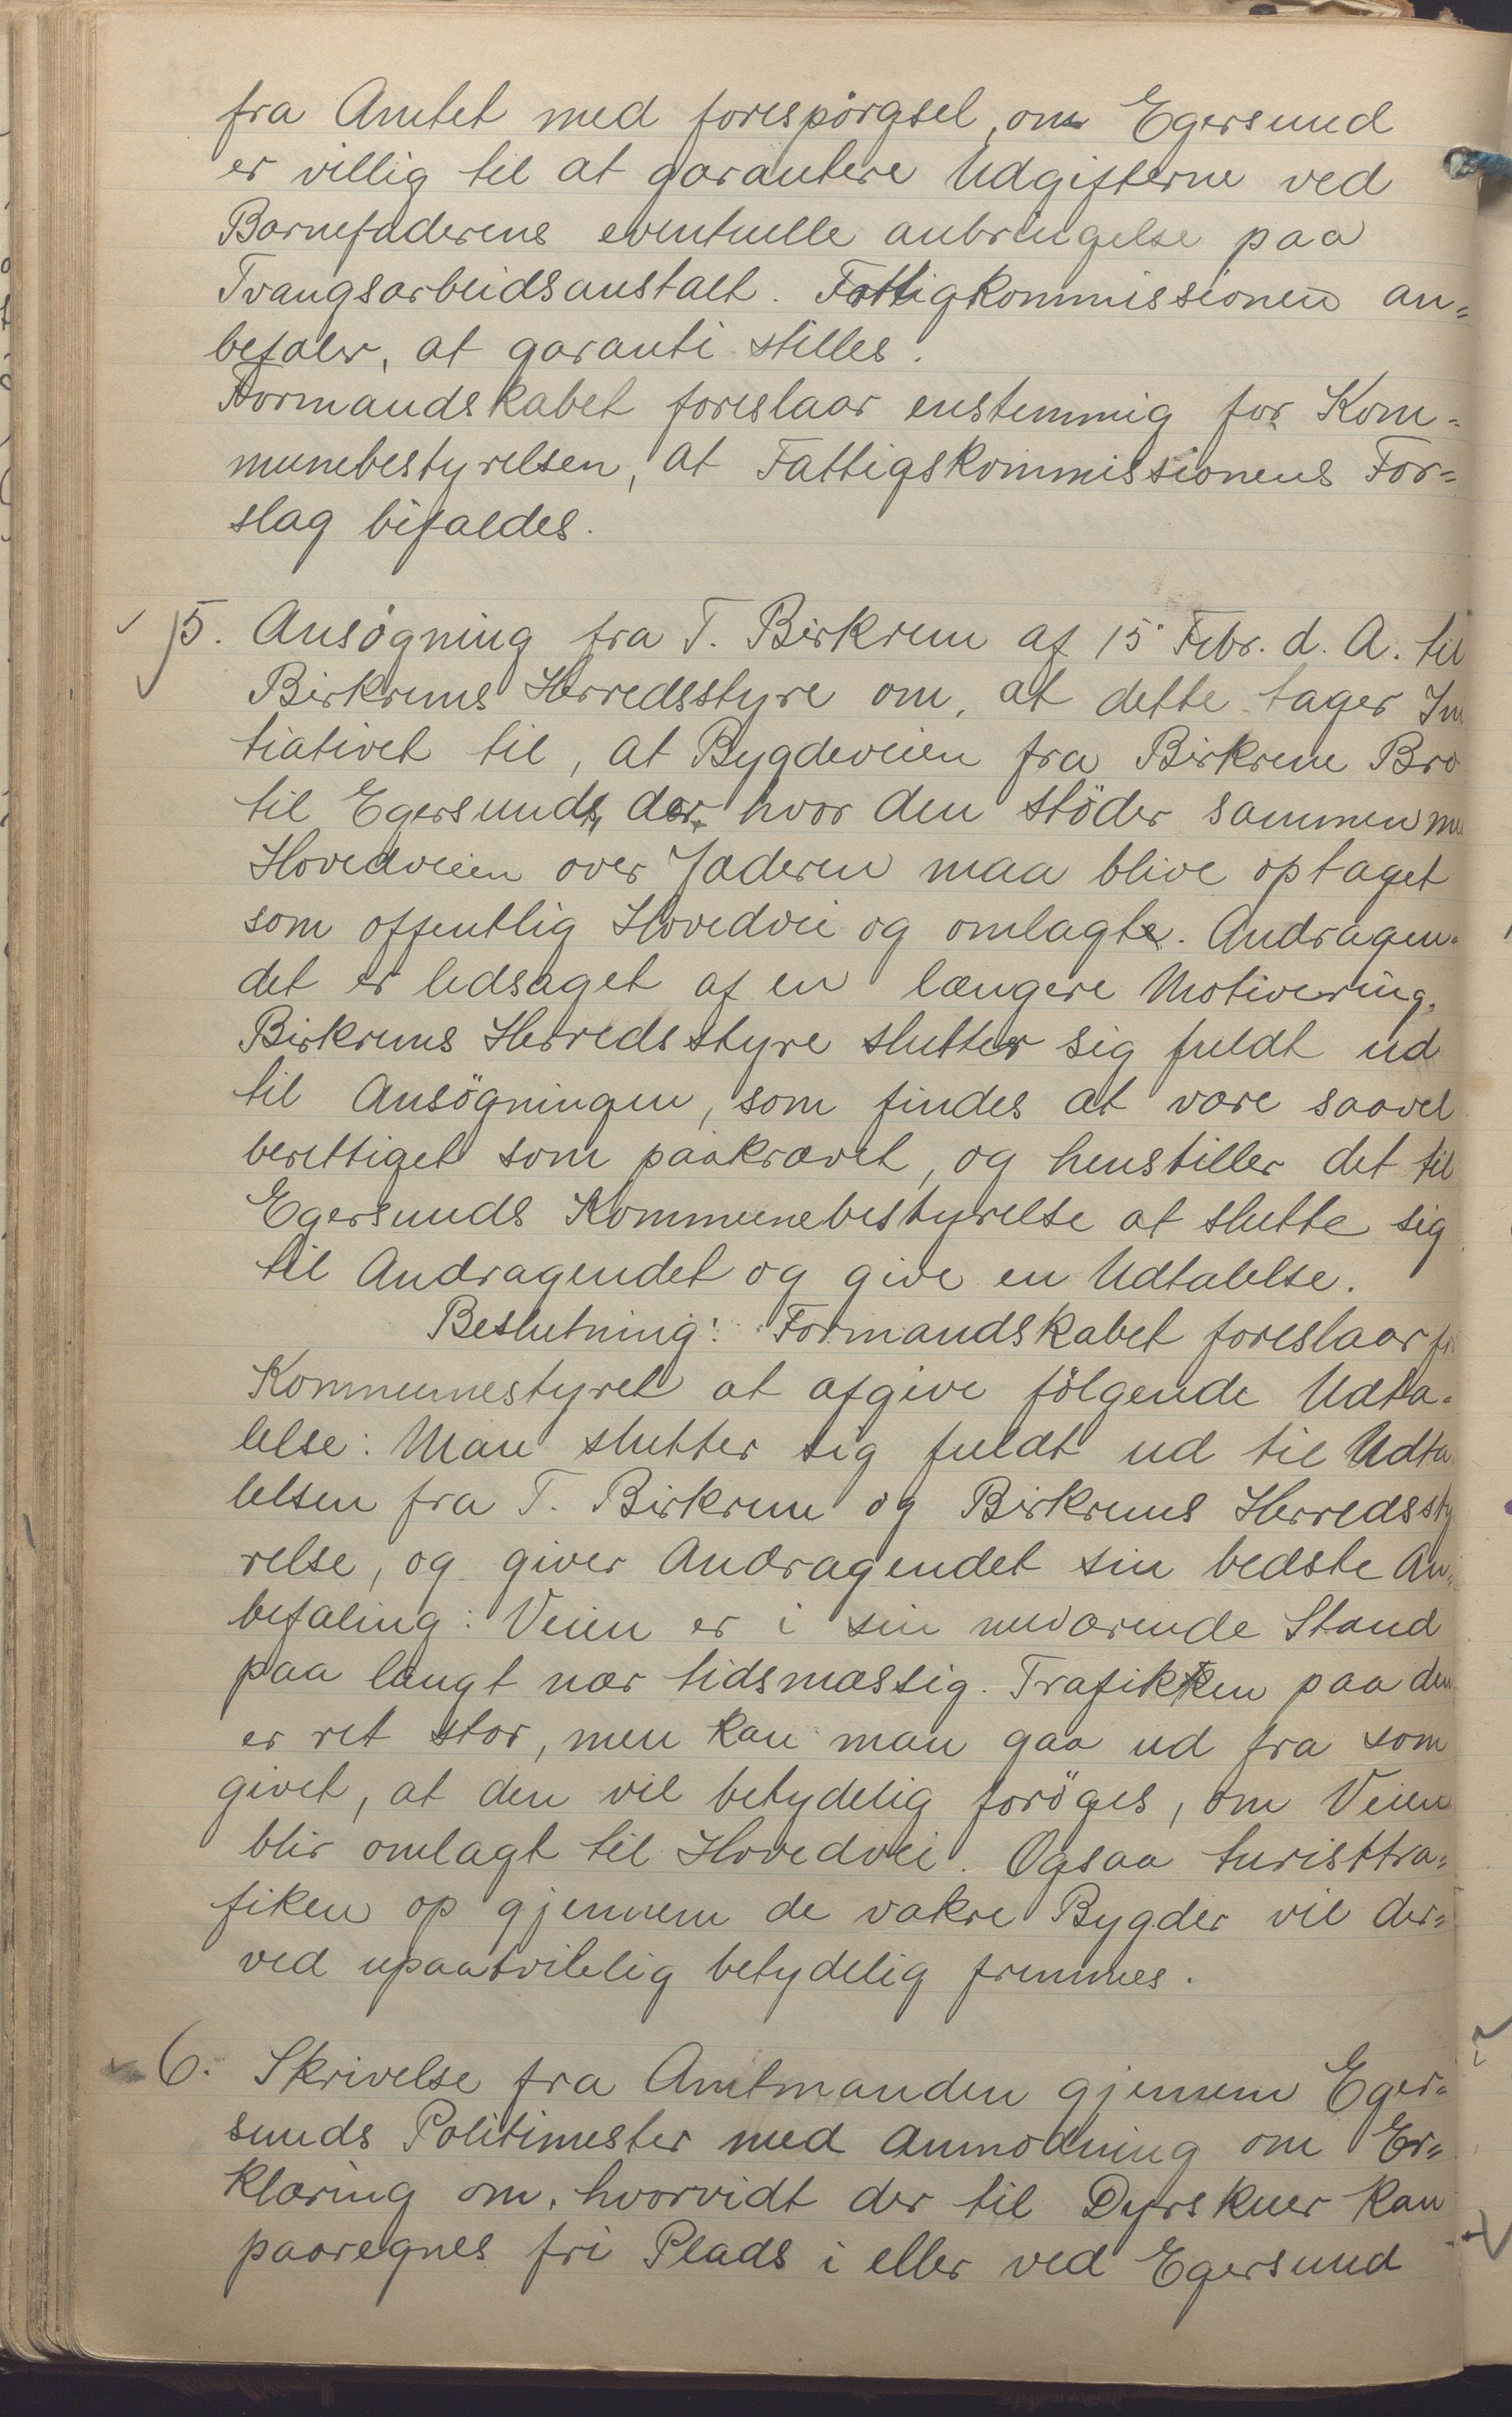 fra Amtet med forespörgsel, om Egersund
er villig til at garantere Udgifterne ved
Barnefaderens eventuelle anbringelse paa
Tvangsarbeidsanstalt. Fattigkommissionen an=
befaler, at garanti stilles.
Formandskabet foreslaar enstemmig for Kom=
munebestyrelsen, at Fattigskommissionens For=
slag bifaldes.
5. Ansögning fra T. Birkrem af 15 Febr. d. A. til
Birkrems Herredsstyre om, at dette tager In
tiativet til, at Bygdeveien fra Birkrem Bro
til Egersund, der, hvor den stöder sammen me
Hovedveien over Jæderen maa blive optaget
som offentlig Hovedvei og omlagt. Andragen=
det er ledsaget af en længere Motivering.
Birkrems Herredsstyre slutter sig fuldt ud
til Ansögningen, som findes at være saavel
berettiget som paakrævet, og henstiller det til
Egersunds Kommunebestyrelse at slutte sig
til Andragendet og give en Udtalelse.
Beslutning: Formandskabet foreslaar fo
Kommunestyret at afgive fölgende Udta=
lelse: Man slutter sig fuldt ud til Udta
lelsen fra T. Birkrem og Birkrems Herredssty
relse, og giver Andragendet sin bedste An=
befaling: Veien er i sin nuværende Stand
paa langt nær tidsmæssig. Trafikken paa den
er ret stor, men kan man gaa ud fra som
givet, at den vil betydelig foröges, om Veien
blir omlagt til Hovedvei. Ogsaa turisttra=
fiken op gjennem de vakre Bygder vil der=
ved upaatvilelig betydelig fremmes.
6. Skrivelse fra Amtmanden gjennem Eger=
sunds Politimester med Anmodning om Er=
klæring om, hvorvidt der til Dyrskuer kan
paaregnes fri Plads i eller ved Egersund